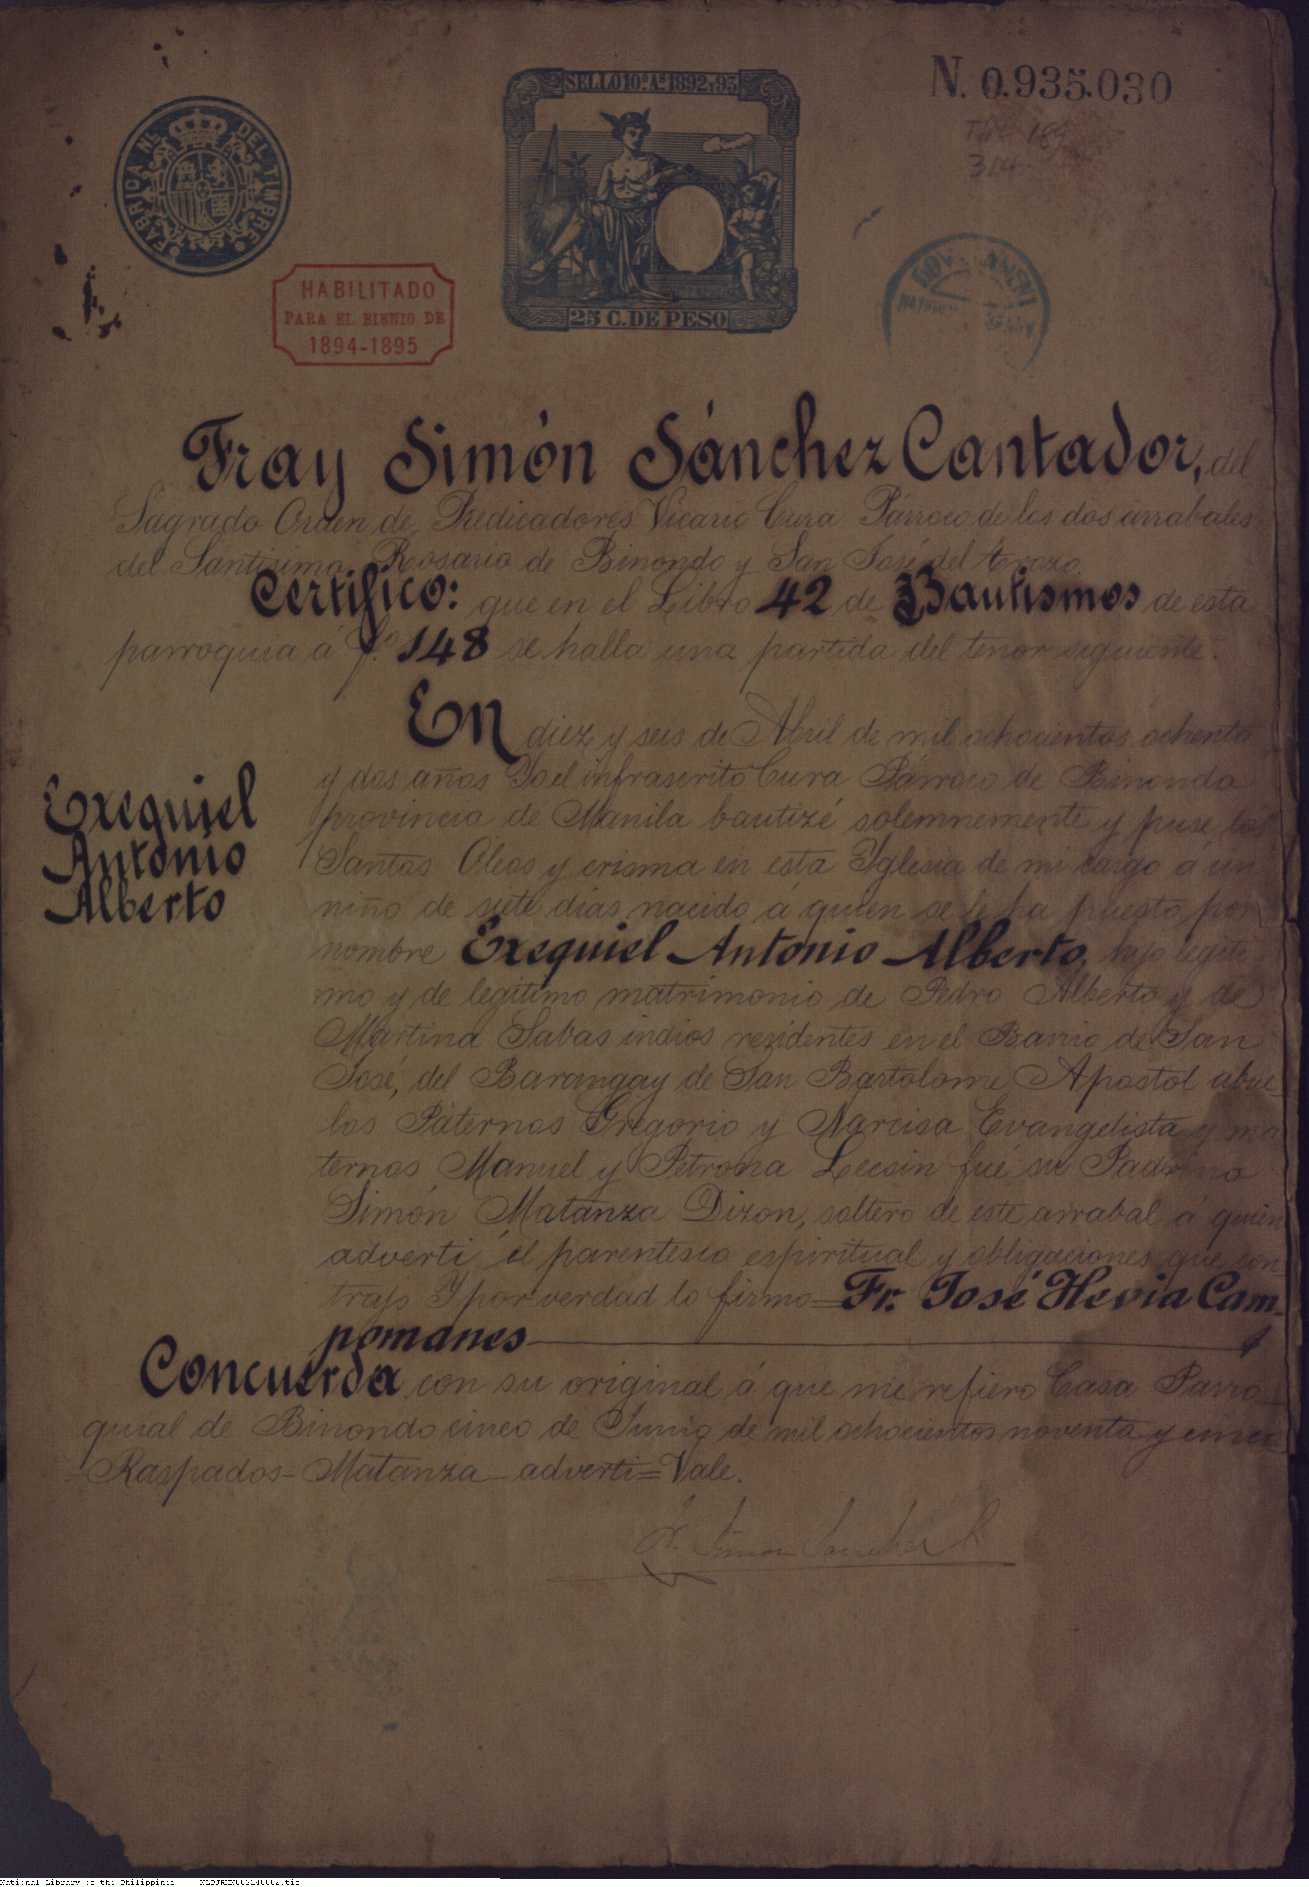 SELLO 10º Aº 1892 y 93
N. 0.935.030
FABRICA NL. DEL TIMBRE
314
HABILITADO
PARA EL BIENIO DE
1894-1895
25 C. DE PESO
Fray Simón Sánchez Cantador, del
Sagrado Orden de Predicadores Vicario Cura Párroco de los dos arrabales
del Santísimo Rosario de Binondo y San José del Trozo
Certifico: que en el Libro 42 de Bautismos de esta
parroquia á fº 148 se halla una partida del tenor siguiente.
En diez y seis de Abril de mil ochocientos ochenta
y dos años Yo el infrascrito Cura Párroco de Binondo
Ezequiel
Antonio
Alberto
provincia de Manila bautizé solemnemente y puse los
Santos Oleos y crisma en esta Yglesia de mi cargo á un
niño de siete días nacido á quien se le ha puesto por
nombre Ezequiel Antonio Alberto, hijo legíti-
mo y de legítimo matrimonio de Pedro Alberto y de
Martina Sabas indios rezidentes en el Barrio de San
José, del Barangay de San Bartolome Apostol abue-
los Páternos Gregorio y Narcisa Evangelista y ma
ternos Manuel y Petrona Leesin fué su Padrino
Simón Matanza Dizon, soltero de este arrabal á quien
advertí el parentesco espiritual y obligaciones que con-
trajo Y por verdad lo firmo=Fr. José Hevia Cam-
pomanes
Concuerda con su original á que me refiero Casa Parro-
quial de Binondo cinco de Junio de mil ochocientos noventa y cinco
-Raspados-Matanza-advertí=Vale.
Fr. Simon Sanchez
National Library of the Philippines